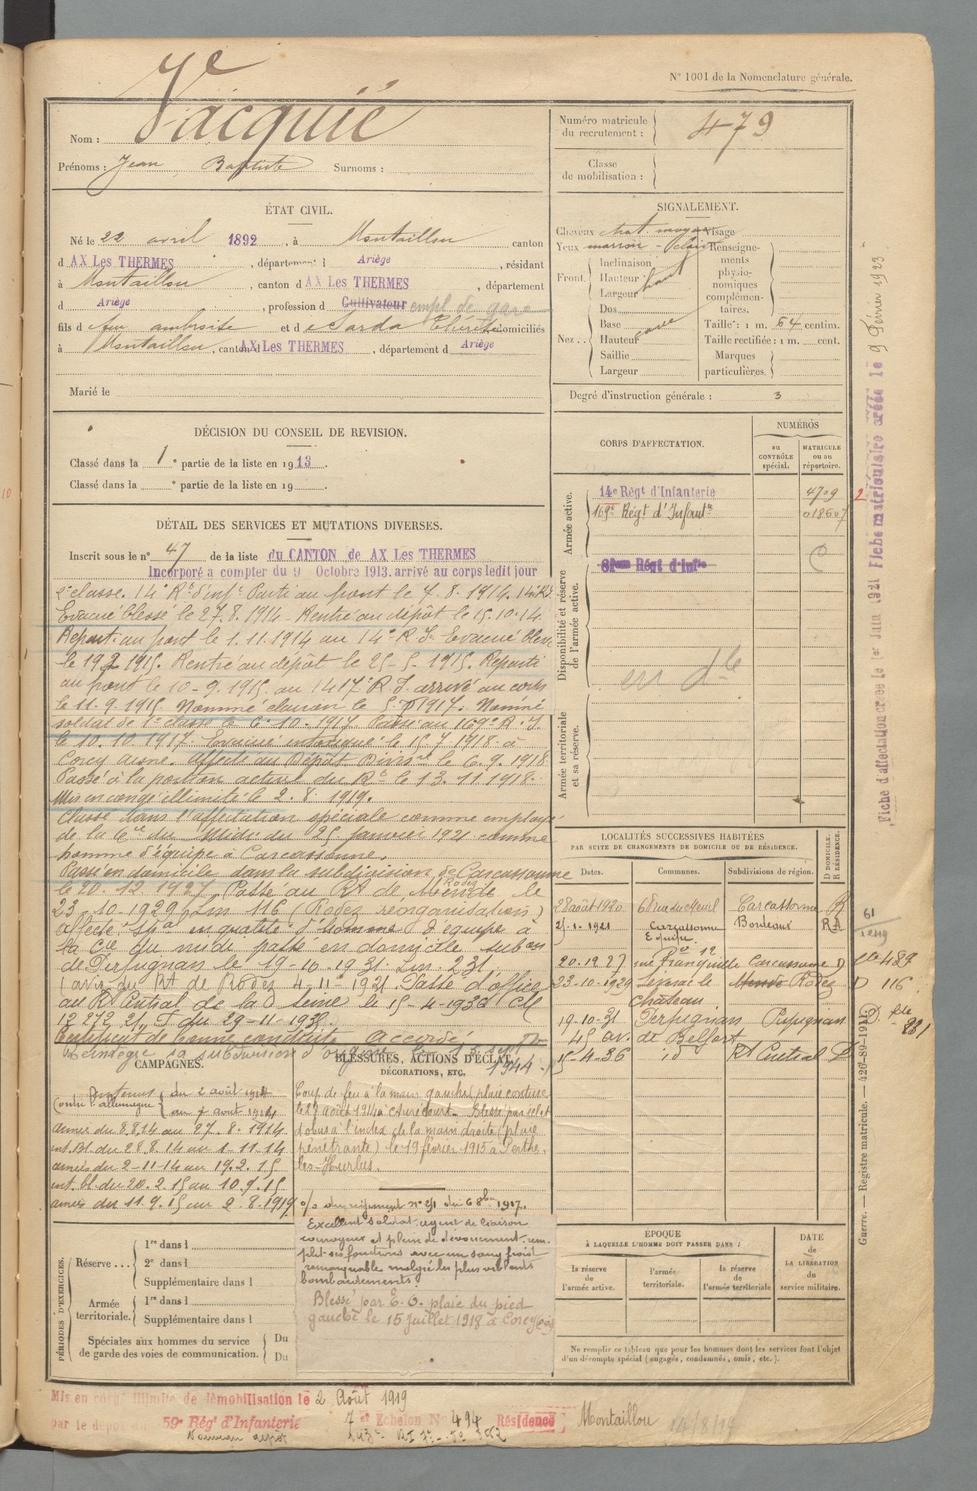 N° 1001 de la Nomenclature générale.
Vacquié
Nom :
Prénoms : Jean Baptiste Surnoms :
Numéro matricule du recrutement : 479
Classe de mobilisation :
ÉTAT CIVIL.
Né le 22 avril 1892, à Montaillou canton
d AX Les THERMES, département d Ariège, résidant
à Montaillou, canton d AX Les THERMES, département
d Ariège, profession de Cultivateur empl. de gare
fils d feu ambroise et de Sarda Thérèse domiciliés
à Montaillou, canton AX Les THERMES, département d Ariège
Marié le
SIGNALEMENT.
Cheveux chat. moyen Visage
Yeux marron
Front. Inclinaison
Hauteur haut
Largeur
Nez.. Dos
Base cave
Hauteur
Saillie
Largeur
Renseignements physionomiques complémentaires.
Taille : 1 m. 64 centim.
Taille rectifiée : 1 m. cent.
Marques particulières.
Degré d'instruction générale : 3
DÉCISION DU CONSEIL DE REVISION.
Classé dans la 1e partie de la liste en 1913.
Classé dans la e partie de la liste en 19
DÉTAIL DES SERVICES ET MUTATIONS DIVERSES.
Inscrit sous le n° 47 de la liste du CANTON de AX Les THERMES
Incorporé à compter du 9 Octobre 1913. arrivé au corps ledit jour
2e classe. 14e Rt d'inf. Parti au front le 7. 8. 1914. 14e RI
Evacué blessé le 27. 8. 1914. Rentré au dépôt le 15.10.14
Reparti au front le 1. 11. 1914 au 14e R I. Evacué blessé
le 19 2 1915. Rentré au dépôt le 25-5-1915. Reparti
au front le 10-9. 1915. au 1417e R I. arrivé au corps
le 11. 9. 1915. Nommé clairon le 1917. Nommé
soldat de 1e classe le 6. 10. 1917. Passé au 169e R. I.
le 10. 10. 1917. Evacué le 15 7 1918 à
Corcy aisne. Affecté au Dépôt Divre le 6. 9. 1918
Passé à la portion active du Rt le 13. 11. 1918.
Mis en congé illimité le 2. 8. 1919.
Classé dans l'affectation spéciale comme employé
de la Cie du Midi du 25 janvier 1921 comme
homme d'équipe à Carcassonne.
Passé en domicile dans la subdivision de Carcassonne
le 20. 12. 1927. Passé au Rt de Mende Rodez le
23. 10-1929, Lm 116 (Rodez réorganisation)
affecté Spal en qualité d'homme d'équipe à
la Cie du midi passé en domicile subon
de Perpignan le 19-10-1931. Lm. 231.
(avis du Rt de Rodez 4-11-1931. Passé d'office
au Rt Central de la Seine le 15-4-1936
du 29-11-1935.
Certificat de bonne conduite accordé
Réintégré sa subdivision d'origine 1944
CORPS D'AFFECTATION.
NUMÉROS
au CONTRÔLE spécial.
MATRICULE ou au répertoire.
Armée active.
14e Régt d'Infanterie 4709
169e Régt d'Infantie 018507
Disponibilité et réserve de l'armée active.
81eme Régt d'infie
en dle
Armée territoriale et sa réserve.
LOCALITÉS SUCCESSIVES HABITÉES
PAR SUITE DE CHANGEMENTS DE DOMICILE OU DE RÉSIDENCE.
Dates. Communes. Subdivisions de région. D DOMICILE. R RÉSIDENCE.
28 août 1920 Carcassonne R
25-1-1921 Carcassonne Equipe Bordeaux R
20. 12 27 rue Tranquille 12 Carcassonne D
23-10-1929 Sévérac le château Mende Rodez D 116
19-10-31 Perpignan Perpignan D. 231
45 av. de Belfort
15-4-36 id Rt Central D
CAMPAGNES.
Contre l'allemagne du 2 août 1914
au 7 août 1914
armées du 8.8.14 au 27. 8. 1914
int. bl. du 28 8. 14 au 1-11. 14
armées du 2-11-14 au 19. 2. 15
int. bl. du 20. 2. 15 au 10. 9. 15
armées du 11. 9. 15 au 2-8-1919
BLESSURES, ACTIONS D'ÉCLAT,
DÉCORATIONS, ETC.
Coup de feu à la main gauche, plaie
le 27 août 1914 à Blessé par éclat
d'obus à l'index de la main droite (plaie
pénétrante) le 19 février 1915 à Perthe-
les-Hurlus.
o/o du régiment n° 251 du 6 8bre 1917.
Excellent soldat. agent de liaison
courageux et plein de dévouement. rem-
plit ses fonctions avec un sang froid
remarquable malgré les plus violents
bombardements.
Blessé par E. O. plaie du pied
gauche le 15 juillet 1918 à Corcy
PÉRIODES D'EXERCICES.
Réserve... 1re dans l
2e dans l
Supplémentaire dans l
Armée territoriale. 1re dans l
Supplémentaire dans l
Spéciales aux hommes du service de garde des voies de communication. Du
Du
ÉPOQUE
À LAQUELLE L'HOMME DOIT PASSER DANS :
la réserve de l'armée active.
l'armée territoriale.
la réserve de l'armée territoriale
DATE de LA LIBÉRATION du service militaire.
Ne remplir ce tableau que pour les hommes dont les services font l'objet
d'un décompte spécial (engagés, condamnés, omis, etc.).
Mis en congé illimité de démobilisation le 2 Août 1919
par le dépôt du 59e Régt d'Infanterie 7e Echelon N° 494 Résidence Montaillou
14/8/19
Fiche d'affectation créée le 1er Juin 1921 Fiche matriculaire créée le 9 Février 1923
Guerre. — Registre matricule. — 426-89-1911.